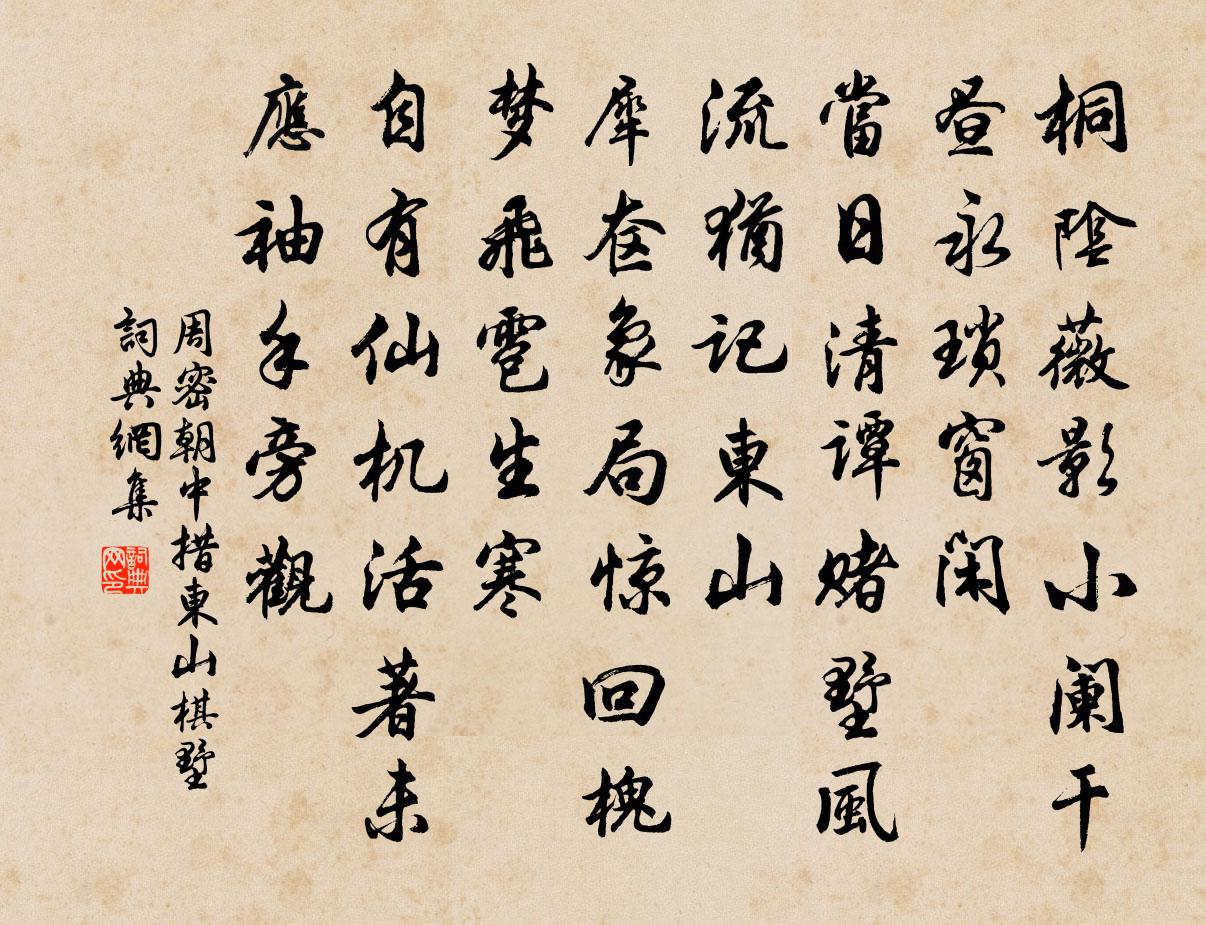 桐陰薇影小闌干
昼永瑣窗閑
當日清譚賭墅風
流猶記東山
犀奁象局惊回槐
梦飛雹生寒
自有仙机活著未
應袖手旁觀
周密朝中措東山棋墅
詞典網集
詞典网印